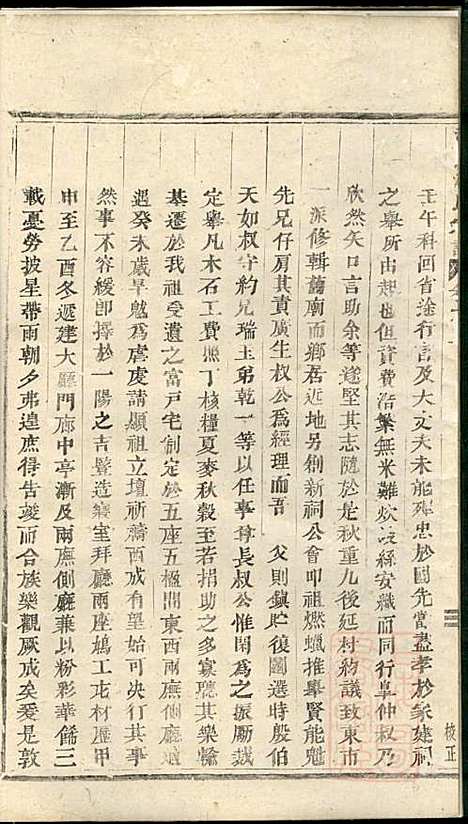 壬午科回省途行言及大丈夫未能殫忠於國先當盡孝於家建祠
之舉所由起也但資費浩繁無米難炊乏絲安織而同行阜仲叔乃
欣然矢口言助余等遂堅其志隨於是秋重九後延村約議致東市
一派修輯舊廟而鄉居近地另剏新祠公會叩祖燃蠟推舉賢能魁
先兄仔肩其責廣生叔公爲經理而吾 父則鎮貯復圖選時殷伯
天如叔守約兄瑞玉弟乾一等以任事尊長叔公惟閑爲之振勵裁
定舉凡木石工費照丁核糧夏麥秋穀至若捐助之多寡聽其樂輸
基遷於我祖受遺之富戶宅制定於五座五楹間東西兩廡側廳甫
遇癸未歲旱魃爲虐虔請顯祖立壇祈禱西成有望始可決行其事
然事不容緩即擇於一陽之吉豎造寢室拜廳兩座鳩工庀材歷甲
申至乙酉冬遞建大廳門廊中亭漸及兩廡側廳兼以粉彩華僃三
載憂勞披星帶雨朝夕弗遑庶得告竣而合族樂觀厥成矣爰是敦
校正